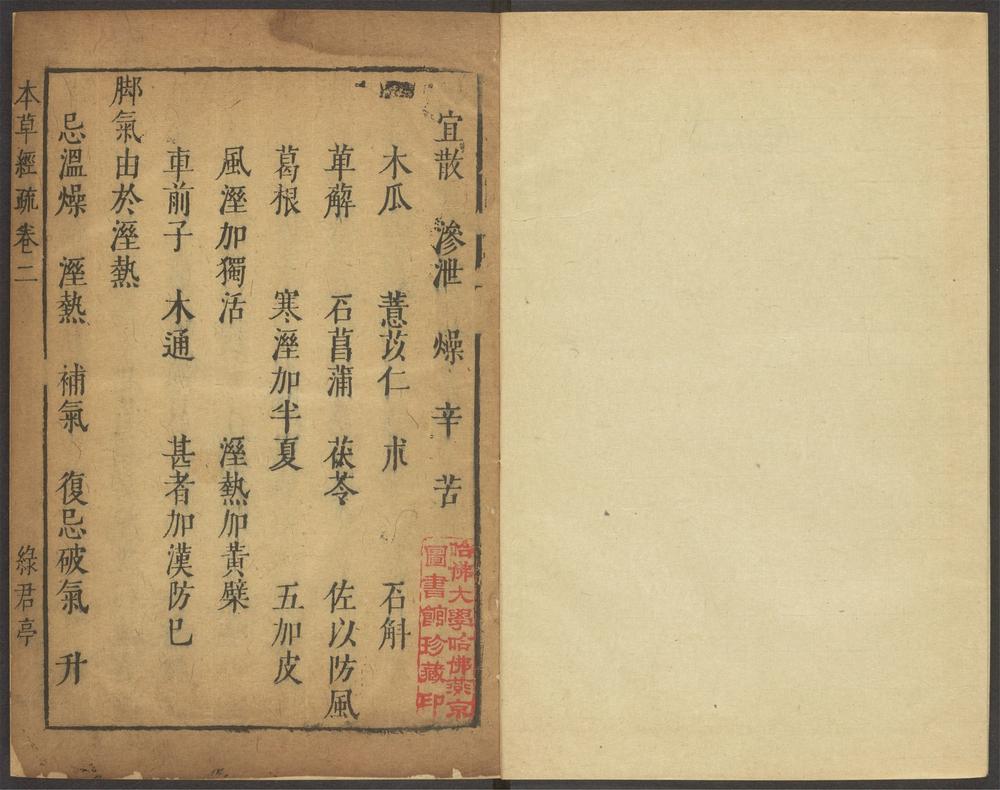 宜散　滲泄　燥　辛　苦
木瓜　薏苡仁　朮　石斛
萆薢　石菖蒲　茯苓　佐以防風
葛根　寒溼加半夏　五加皮
風溼加獨活　溼熱加黃檗
車前子　木通　甚者加漢防巳
脚氣由於溼熱
忌溫燥　溼熱　補氣　復忌破氣　升
本草經疏卷二　綠君亭
哈佛大學哈佛燕京
圖書館珍藏印